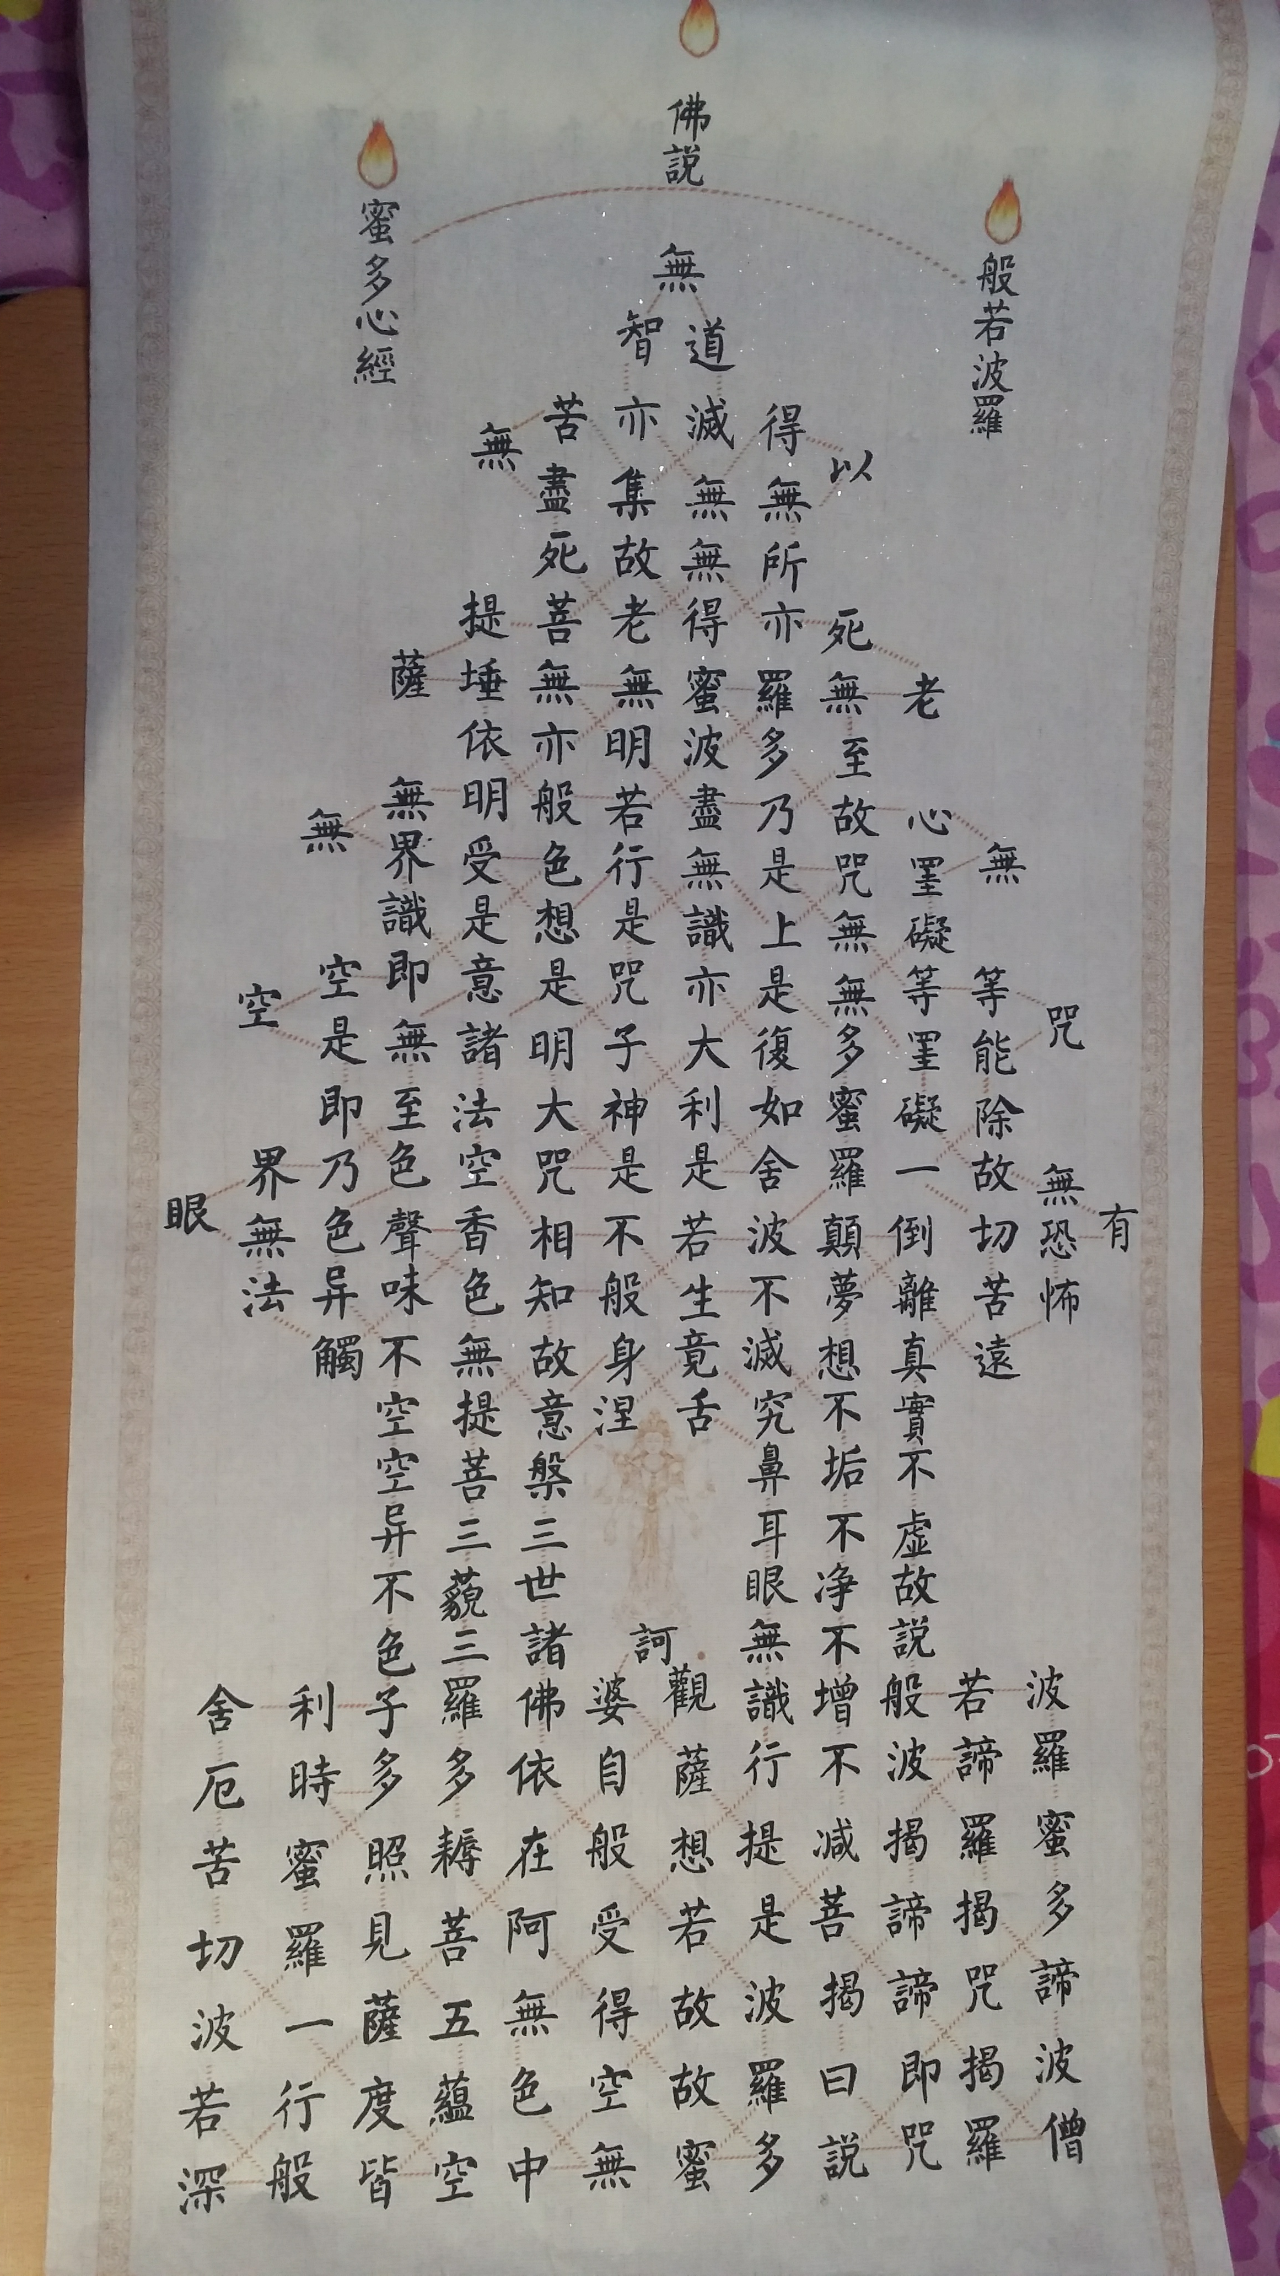 佛説
般若波羅
蜜多心經
有
咒無恐怖波羅蜜多諦波僧
無等能除故切苦遠若諦羅揭咒揭羅
老心罣礙等罣礙一倒離真實不虛故説般波揭諦諦即咒
以死無至故咒無無多蜜羅顛夢想不垢不净不增不减菩揭曰説
得無所亦羅多乃是上是復如舍波不滅究鼻耳眼無識行提是波羅多
道滅無無得蜜波盡無識亦大利是若生竟舌觀薩想若故故蜜
無
訶
智亦集故老無明若行是咒子神是不般身涅婆自般受得空無
苦盡死菩無亦般色想是明大咒相知故意槃三世諸佛依在阿無色中
無提埵依明受是意諸法空香色無提菩三藐三羅多耨菩五蘊空
薩無界識即無至色聲味不空空异不色子多照見薩度皆
無空是即乃色异觸利時蜜羅一行般
空界無法舍厄苦切波若深
眼